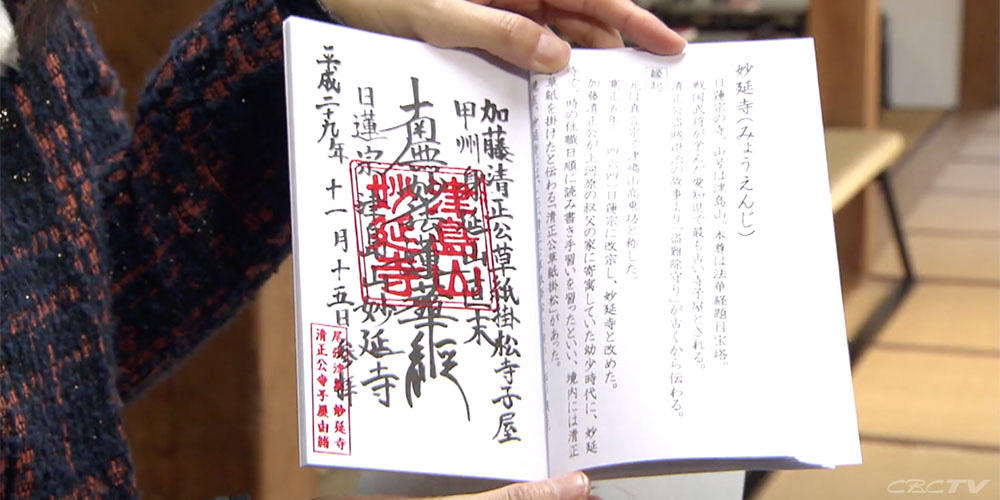 妙延寺(みょうえんじ)
日蓮宗の寺。山号は津島山。本尊は法華経題目宝塔。
戦国武将が学んだ愛知県で最も古い寺子屋とされる。
清正公
の故事より「盗難除守り」が古くから伝わる。
縁起
元は真言宗で津島山高東坊と称した。
日蓮宗に改宗し、妙延寺と改めた。
加藤清正公が上河原の叔父の家に寄寓していた幼少時代に、妙延
時の住職日順に読み書き手習いを習ったといい、境内には清正
草紙を掛けたと伝わる「清正公草紙掛松」があった。
加藤清正公草紙掛松寺子屋
甲州身延山直末
南無妙法蓮華経
日蓮宗 津島山 妙延寺
平成二十九年 十一月十五日 参拝
津島山
妙延寺
尾張津島 妙延寺
清正公寺子屋由緒
CBCTV